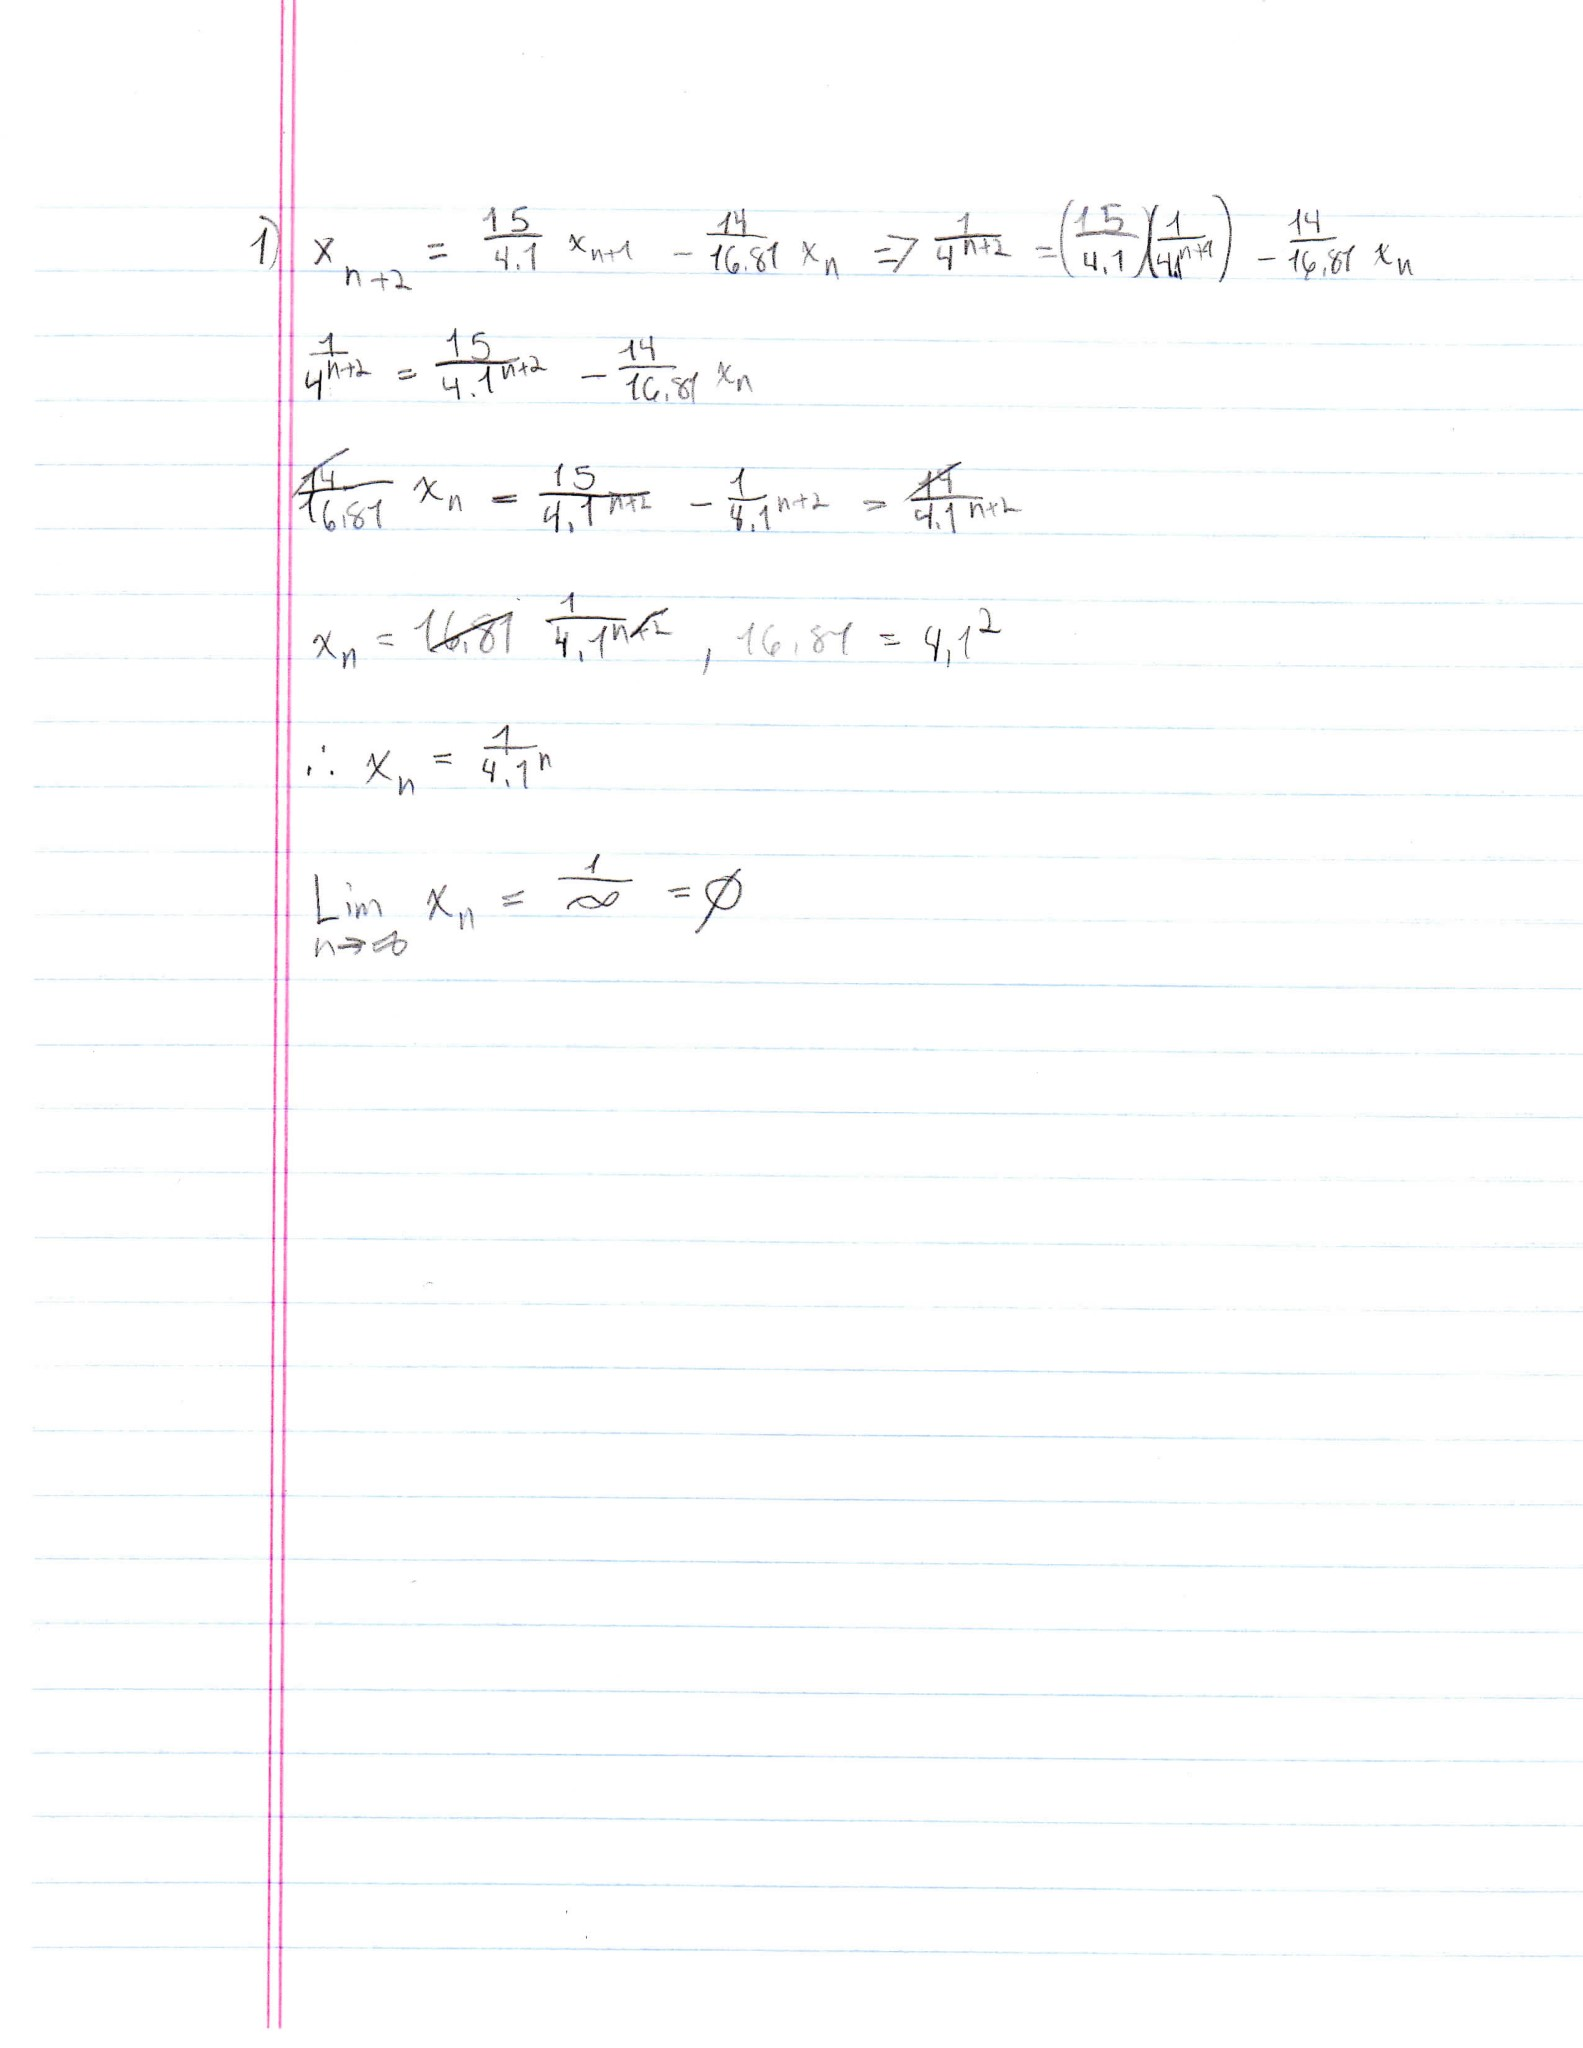 1) x_{n+2} = \frac{15}{4.1} x_{n+1} - \frac{14}{16.81} x_n => \frac{1}{4^{n+2}} = (\frac{15}{4.1})(\frac{1}{4.1^{n+1}}) - \frac{14}{16.81} x_n
\frac{1}{4^{n+2}} = \frac{15}{4.1^{n+2}} - \frac{14}{16.81} x_n
\frac{14}{16.81} x_n = \frac{15}{4.1^{n+2}} - \frac{1}{4.1^{n+2}} = \frac{14}{4.1^{n+2}}
x_n = 16.81 \frac{1}{4.1^{n+2}}, 16.81 = 4.1^2
∴ x_n = \frac{1}{4.1^n}
Lim_{n→∞} x_n = \frac{1}{∞} = ∅